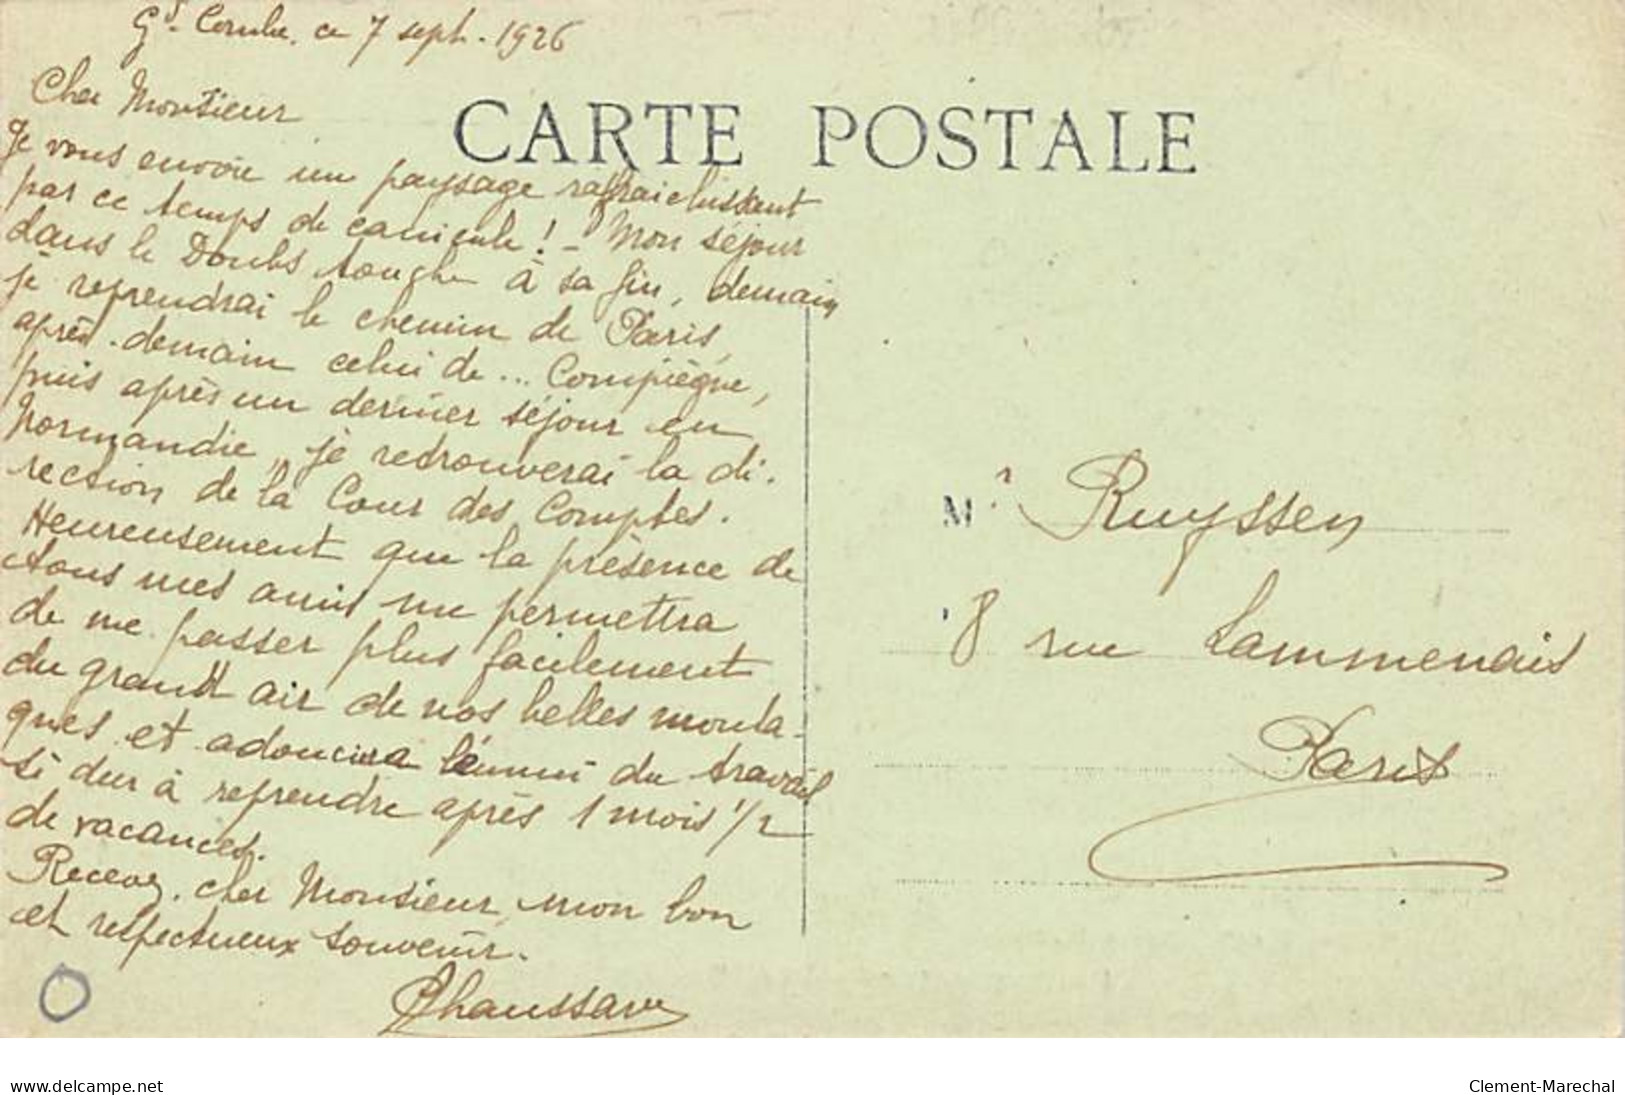 Gd. Combe, ce 7 sept. 1926
Cher Monsieur
CARTE POSTALE
Je vous envoie un paysage rafraichissant
par ce temps de canicule ! - Mon séjour
dans le Doubs touche à sa fin, demain
je reprendrai le chemin de Paris,
après-demain celui de... Compiègne,
puis après un dernier séjour en
Normandie, je retrouverai la di-
rection de la Cour des Comptes.
Heureusement que la présence de
tous mes amis me permettra
de me passer plus facilement
du grand air de nos belles monta-
gnes et adoucira l'ennui du travail
si dur à reprendre après 1 mois 1/2
de vacances.
Recevez, cher Monsieur, mon bon
et respectueux souvenir.
Chaussave
Mr Ruyssen
8 rue Lammenais
Paris
delcampe.net
Clement-Marechal